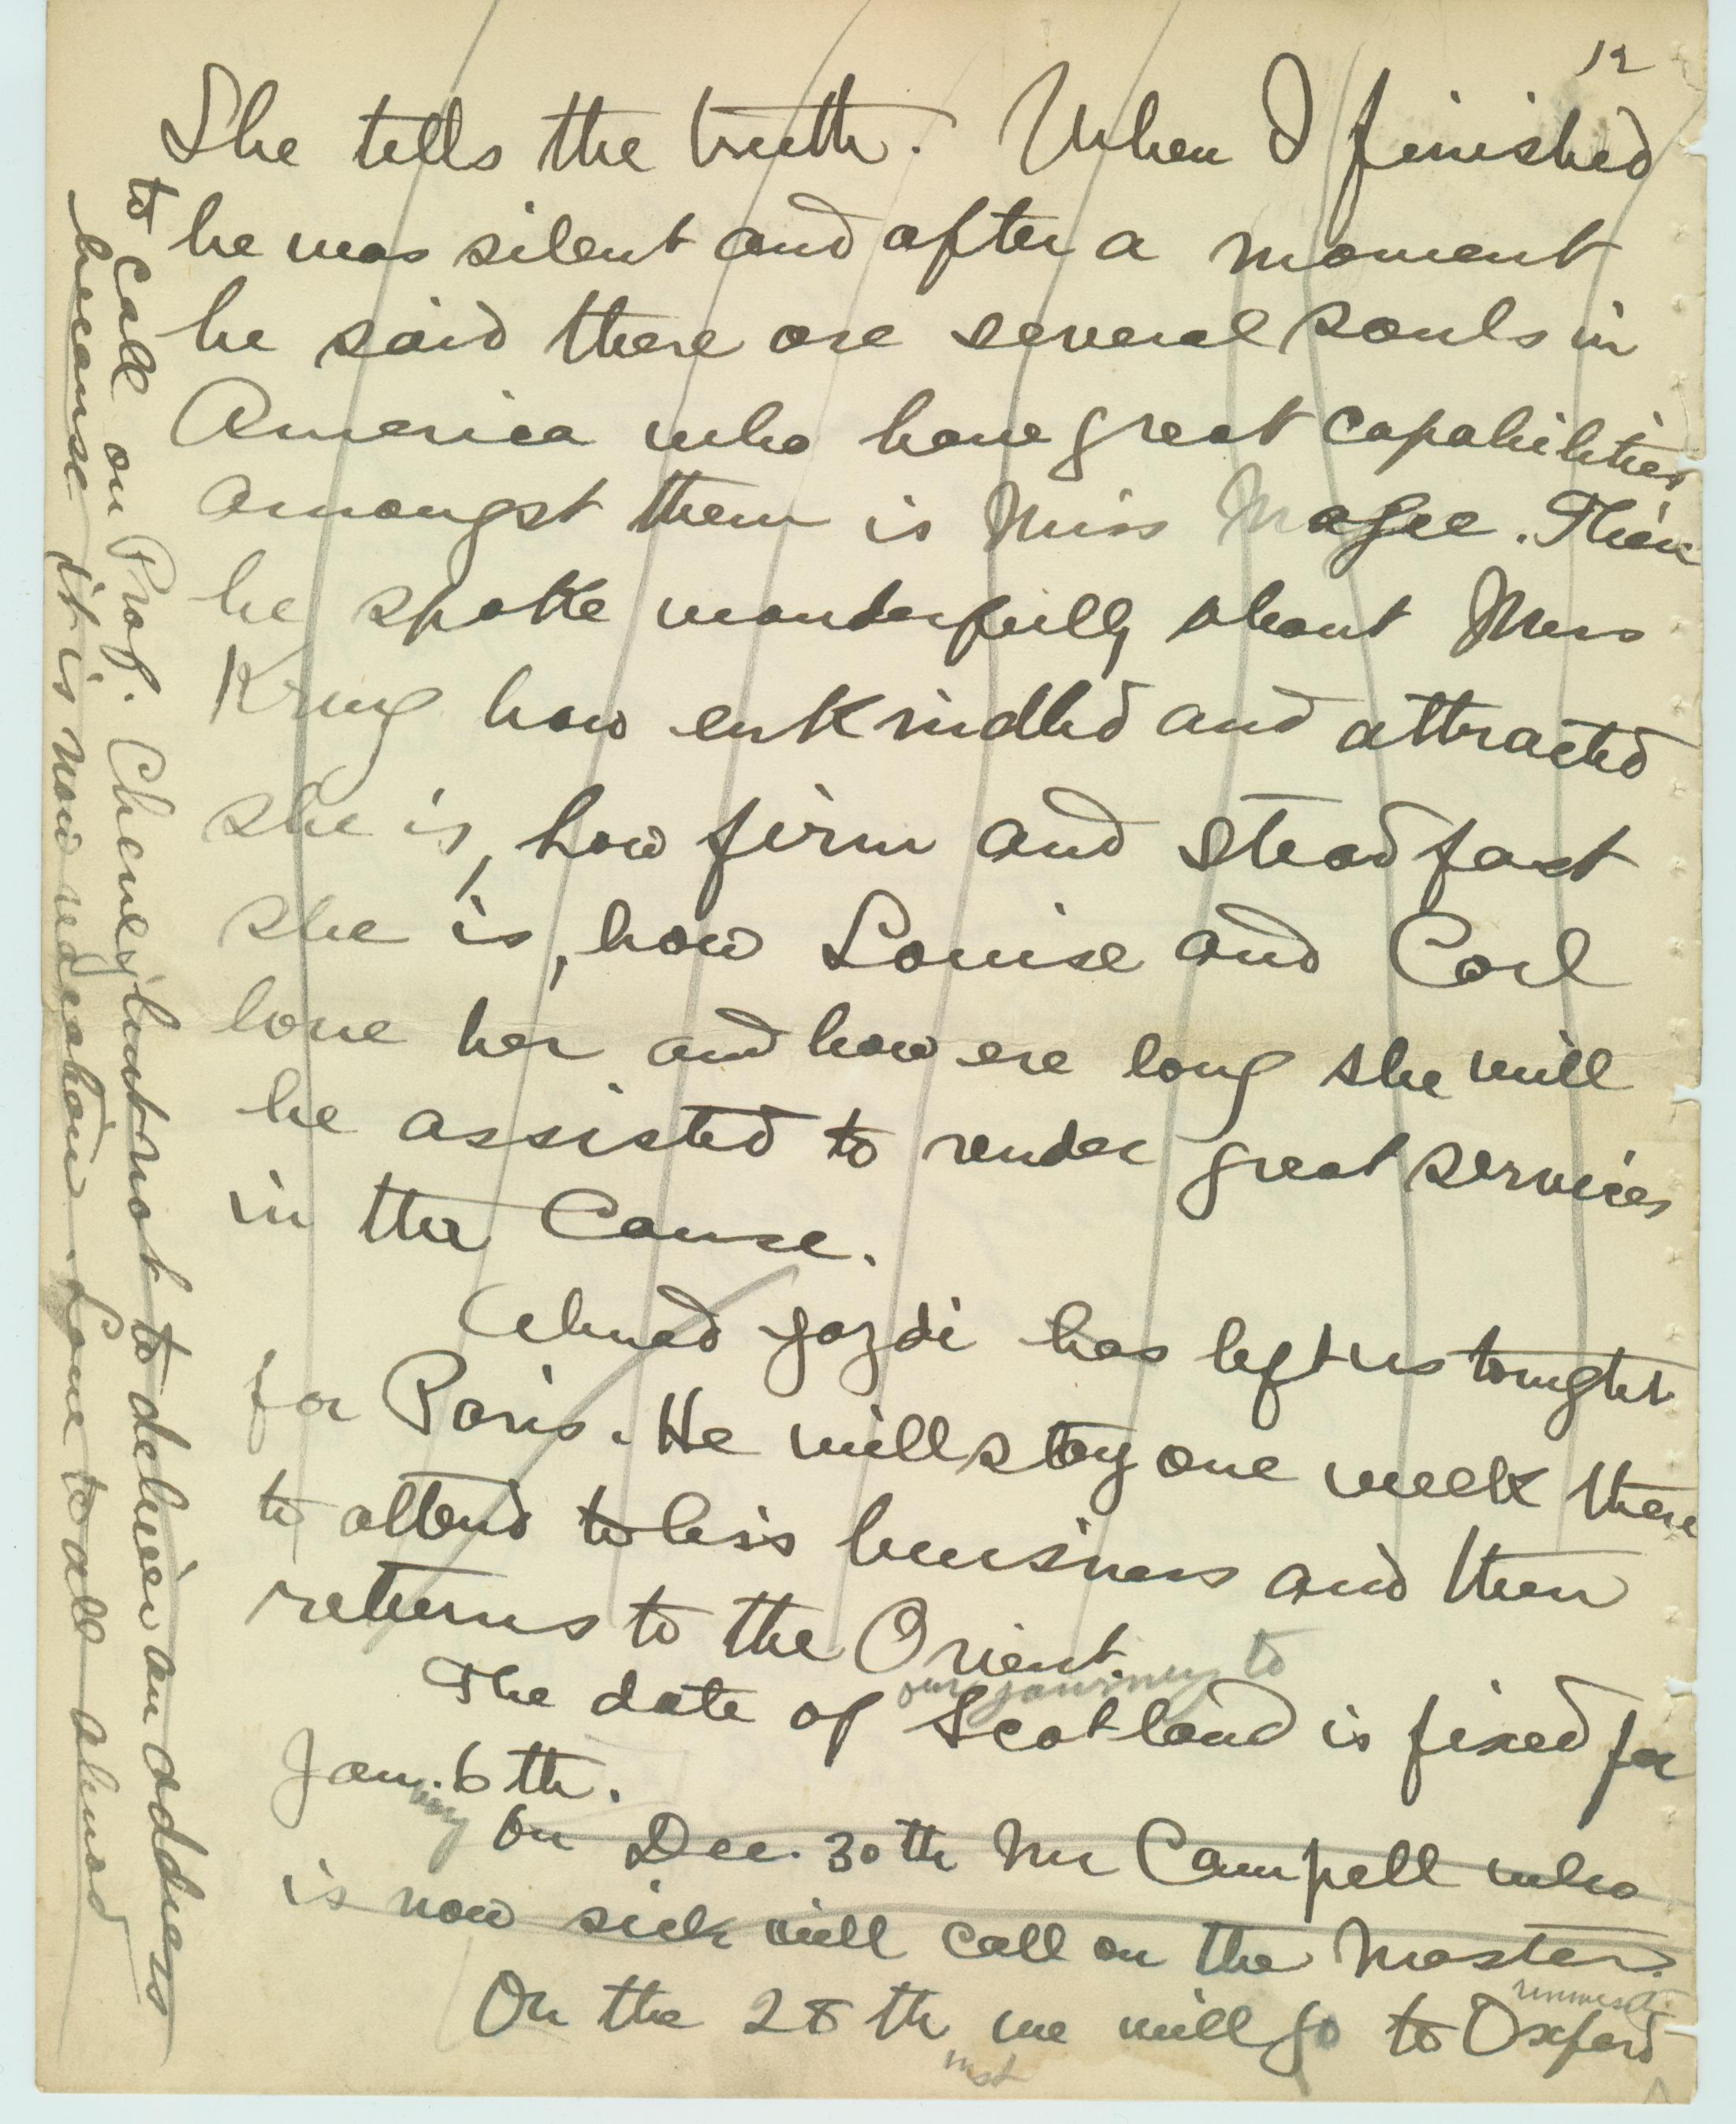 12
She tells the truth. When I finished
he was silent and after a moment
he said there are several souls in
America who have great capabilities
amongst them is Miss Magee. Then
he spoke wonderfully about Mrs
Krug how enkindled and attracted
she is, how firm and steadfast
she is, how Louise and Carl
love her and how ere long she will
be assisted to render great services
in the Cause.
Ahmad Yazdi has left us tonight
for Paris. He will stay one week there
to attend to his business and then
returns to the Orient.
our journey to
The date of Scotland is fixed for
Jan. 6th.
On Dec. 30th Mr Campell who
is now sick will call on the Master.
On the 28th we will go to Oxford
inst
to call on Prof. Cheney but not to deliver an address
because it is now vacation. Love to all Ahmad